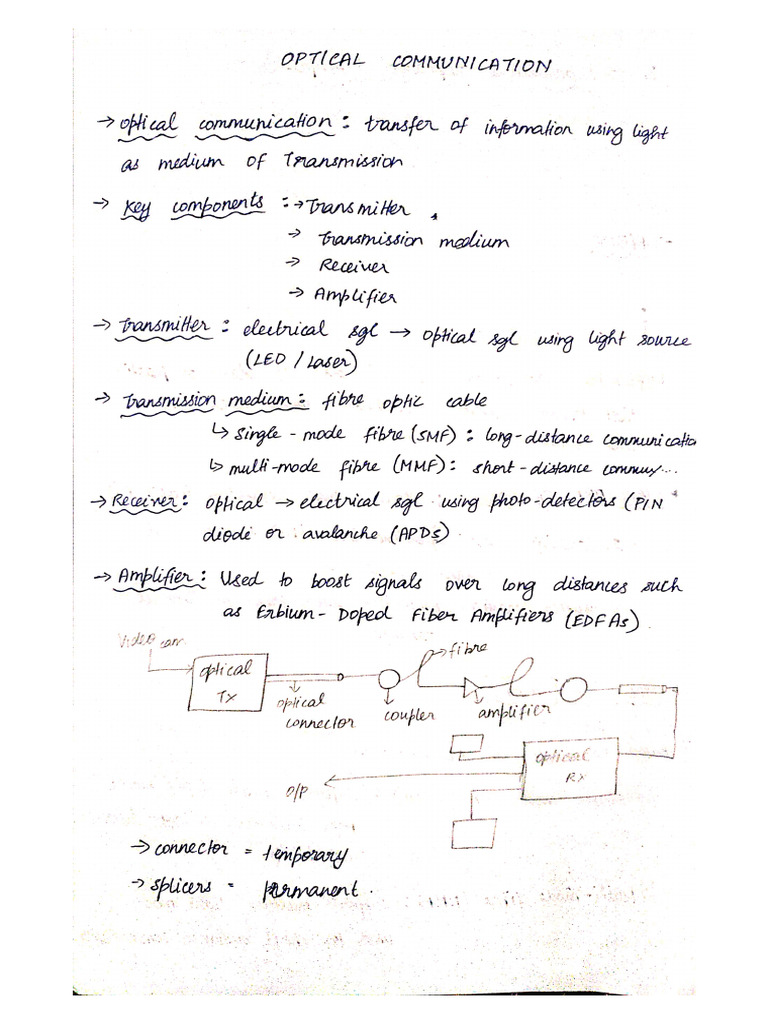 OPTICAL COMMUNICATION
→ Optical communication : transfer of information using light
as medium of Transmission
→ Key components : → Transmitter
→ Transmission medium
→ Receiver
→ Amplifier
→ Transmitter : electrical sgl → optical sgl using light source
(LED / Laser)
→ Transmission medium : fibre optic cable
↳ Single - mode fibre (SMF) : long-distance communicatio
↳ multi-mode fibre (MMF) : short-distance commu...
→ Receiver : optical → electrical sgl using photo-detectors (PIN
diode or avalanche (APDs)
→ Amplifier : Used to boost signals over long distances such
as Erbium - Doped Fiber Amplifiers (EDFAs)
Video cam
→ fibre
optical
TX
optical
connector
coupler
amplifier
optical
RX
O/P
→ connector = temporary
→ splicers = permanent.